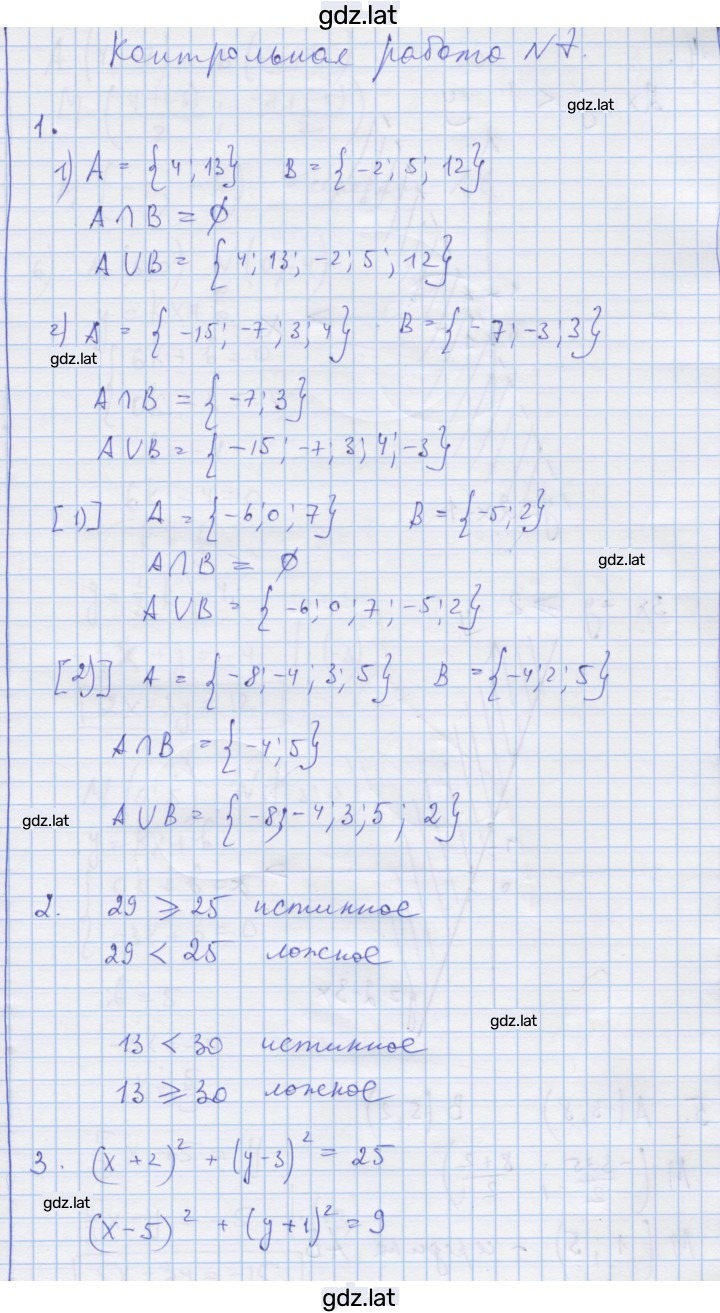 gdz.lat
Контрольная работа N 7.
gdz.lat
1.
1) A = {4; 13} B = {-2; 5; 12}
A ∩ B = ∅
A ∪ B = {4; 13; -2; 5; 12}
2) A = {-15; -7; 3; 4} B = {-7; -3; 3}
gdz.lat
A ∩ B = {-7; 3}
A ∪ B = {-15; -7; 3; 4; -3}
[1)] A = {-6; 0; 7} B = {-5; 2}
A ∩ B = ∅
gdz.lat
A ∪ B = {-6; 0; 7; -5; 2}
[2)] A = {-8; -4; 3; 5} B = {-4; 2; 5}
A ∩ B = {-4; 5}
gdz.lat
A ∪ B = {-8; -4; 3; 5; 2}
2. 29 ⩾ 25 истинное
29 < 25 ложное
gdz.lat
13 < 30 истинное
13 ⩾ 30 ложное
3. (x + 2)² + (y - 3)² = 25
gdz.lat
(x - 5)² + (y + 1)² = 9
gdz.lat